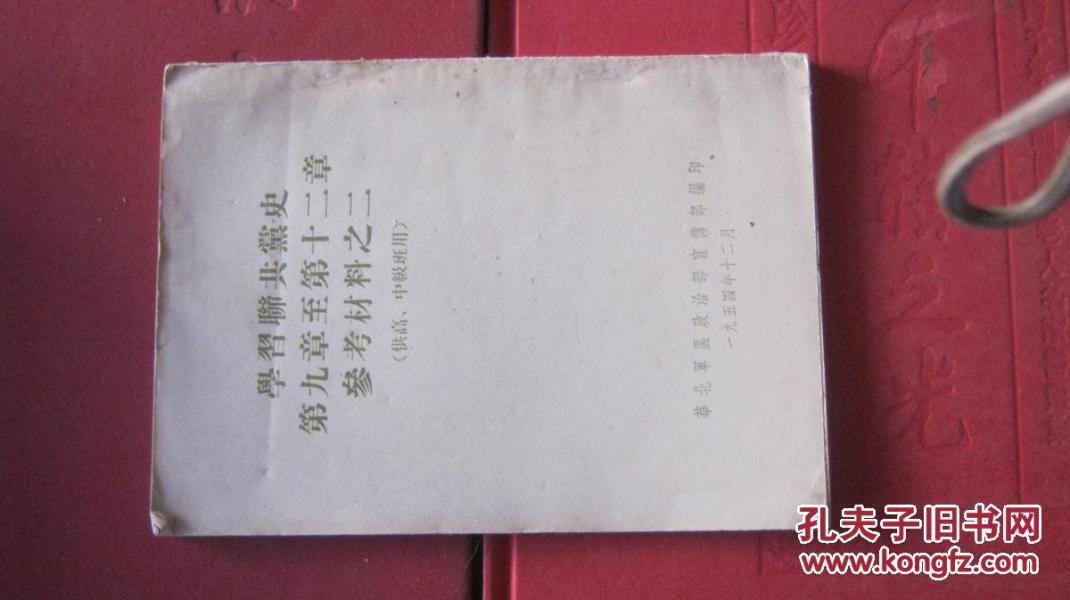 學習聯共黨史
第九章至第十二章
參考材料之二
（供高、中級班用）
華北軍區政治部宣傳部編印
一九五四年十二月
孔夫子旧书网
www.kongfz.com